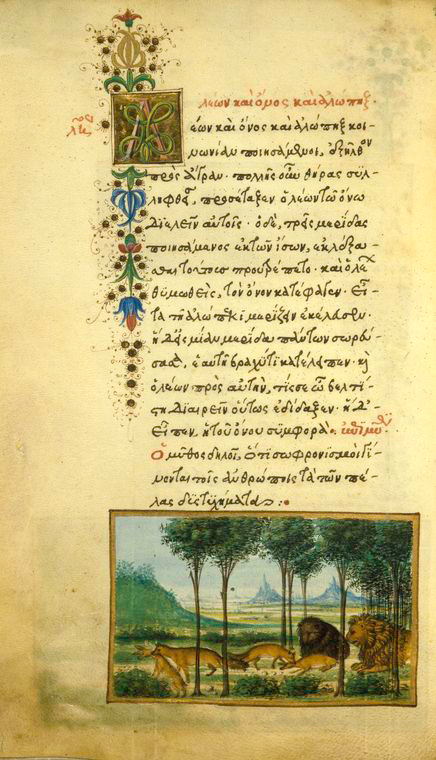 λέων καὶ ὄνος καὶ ἀλώπηξ.
έων καὶ ὄνος καὶ ἀλώπηξ κοι-
νωνίαν ποιησάμενοι, ἐξῆλθον
πρὸς ἄγραν. πολλῆς οὖν θήρας συλ-
ληφθείσης, προσέταξεν ὁ λέων τῷ ὄνῳ
διελεῖν αὐτοῖς. ὁ δὲ, τρεῖς μερίδας
ποιησάμενος ἐκ τῶν ἴσων, ἐκλέξα-
σθαι τούτους προὐτρέπετο. καὶ ὁ λέων
θυμωθεὶς, τὸν ὄνον κατέφαγεν. εἶ-
τα τῇ ἀλώπεκι μερίζειν ἐκέλευσεν.
ἡ δ' εἰς μίαν μερίδα πάντων σωρεύ-
σασα, ἑαυτῇ βραχύ τι κατέλιπεν. καὶ
ὁ λέων πρὸς αὐτὴν, τίς σε ὦ βελτί-
στη διαιρεῖν οὕτως ἐδίδαξεν. ἡ δ'
εἶπεν, ἡ τοῦ ὄνου συμφορά. ἐπιμύθιον
Ὁ μῦθος δηλοῖ, ὅτι σωφρονισμοὶ γί-
νονται τοῖς ἀνθρώποις τὰ τῶν πέ-
λας δυστυχήματα: